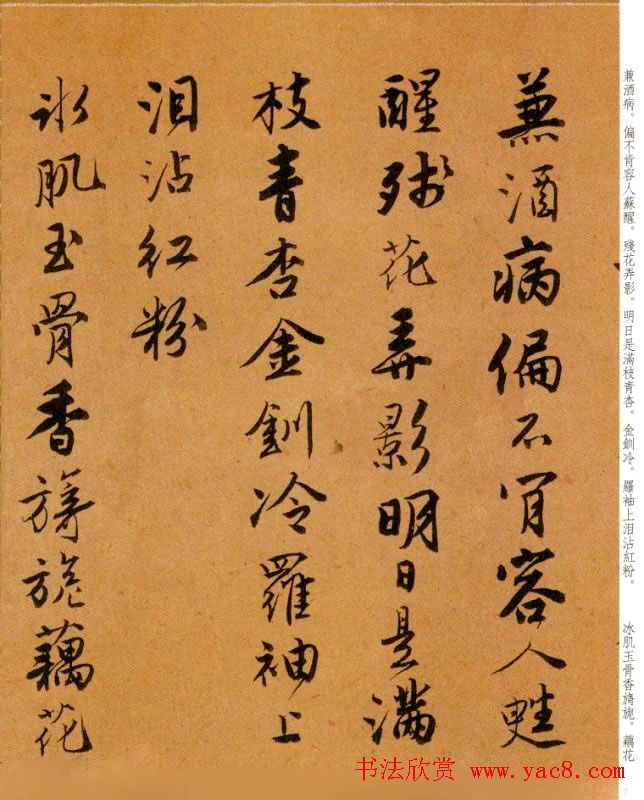 兼酒病偏不肯容人甦
醒殘花弄影明日是滿
枝青杏金釧冷羅袖上
泪沾紅粉
冰肌玉骨香旖旎藕花
兼酒病。偏不肯容人蘇醒。殘花弄影。明日是滿枝青杏。金釧冷。羅袖上泪沾紅粉。 冰肌玉骨香旖旎。藕花
书法欣赏 www.yac8.com